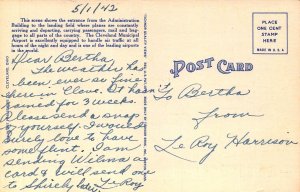 5/1/42
This scene shows the entrance from the Administration
Building to the landing field where planes are constantly
arriving and departing, carrying passengers, mail and bag-
gage to all parts of the country. The Cleveland Municipal
Airport is excellently equipped to handle air traffic at all
hours of the night and day and is one of the leading airports
in the world.
Dear Bertha
The weather has
been ever so fine
here in Cleve. It hasn't
rained for 3 weeks.
Please send a snap
of yourself. I would
surely love to have
some flint. I am
sending Wilma a
card & will send one
to Shirely later. LeRoy
POST CARD
To Bertha
from
Le Roy Harrison
PLACE
ONE CENT
STAMP
HERE
MADE IN U.S.A.